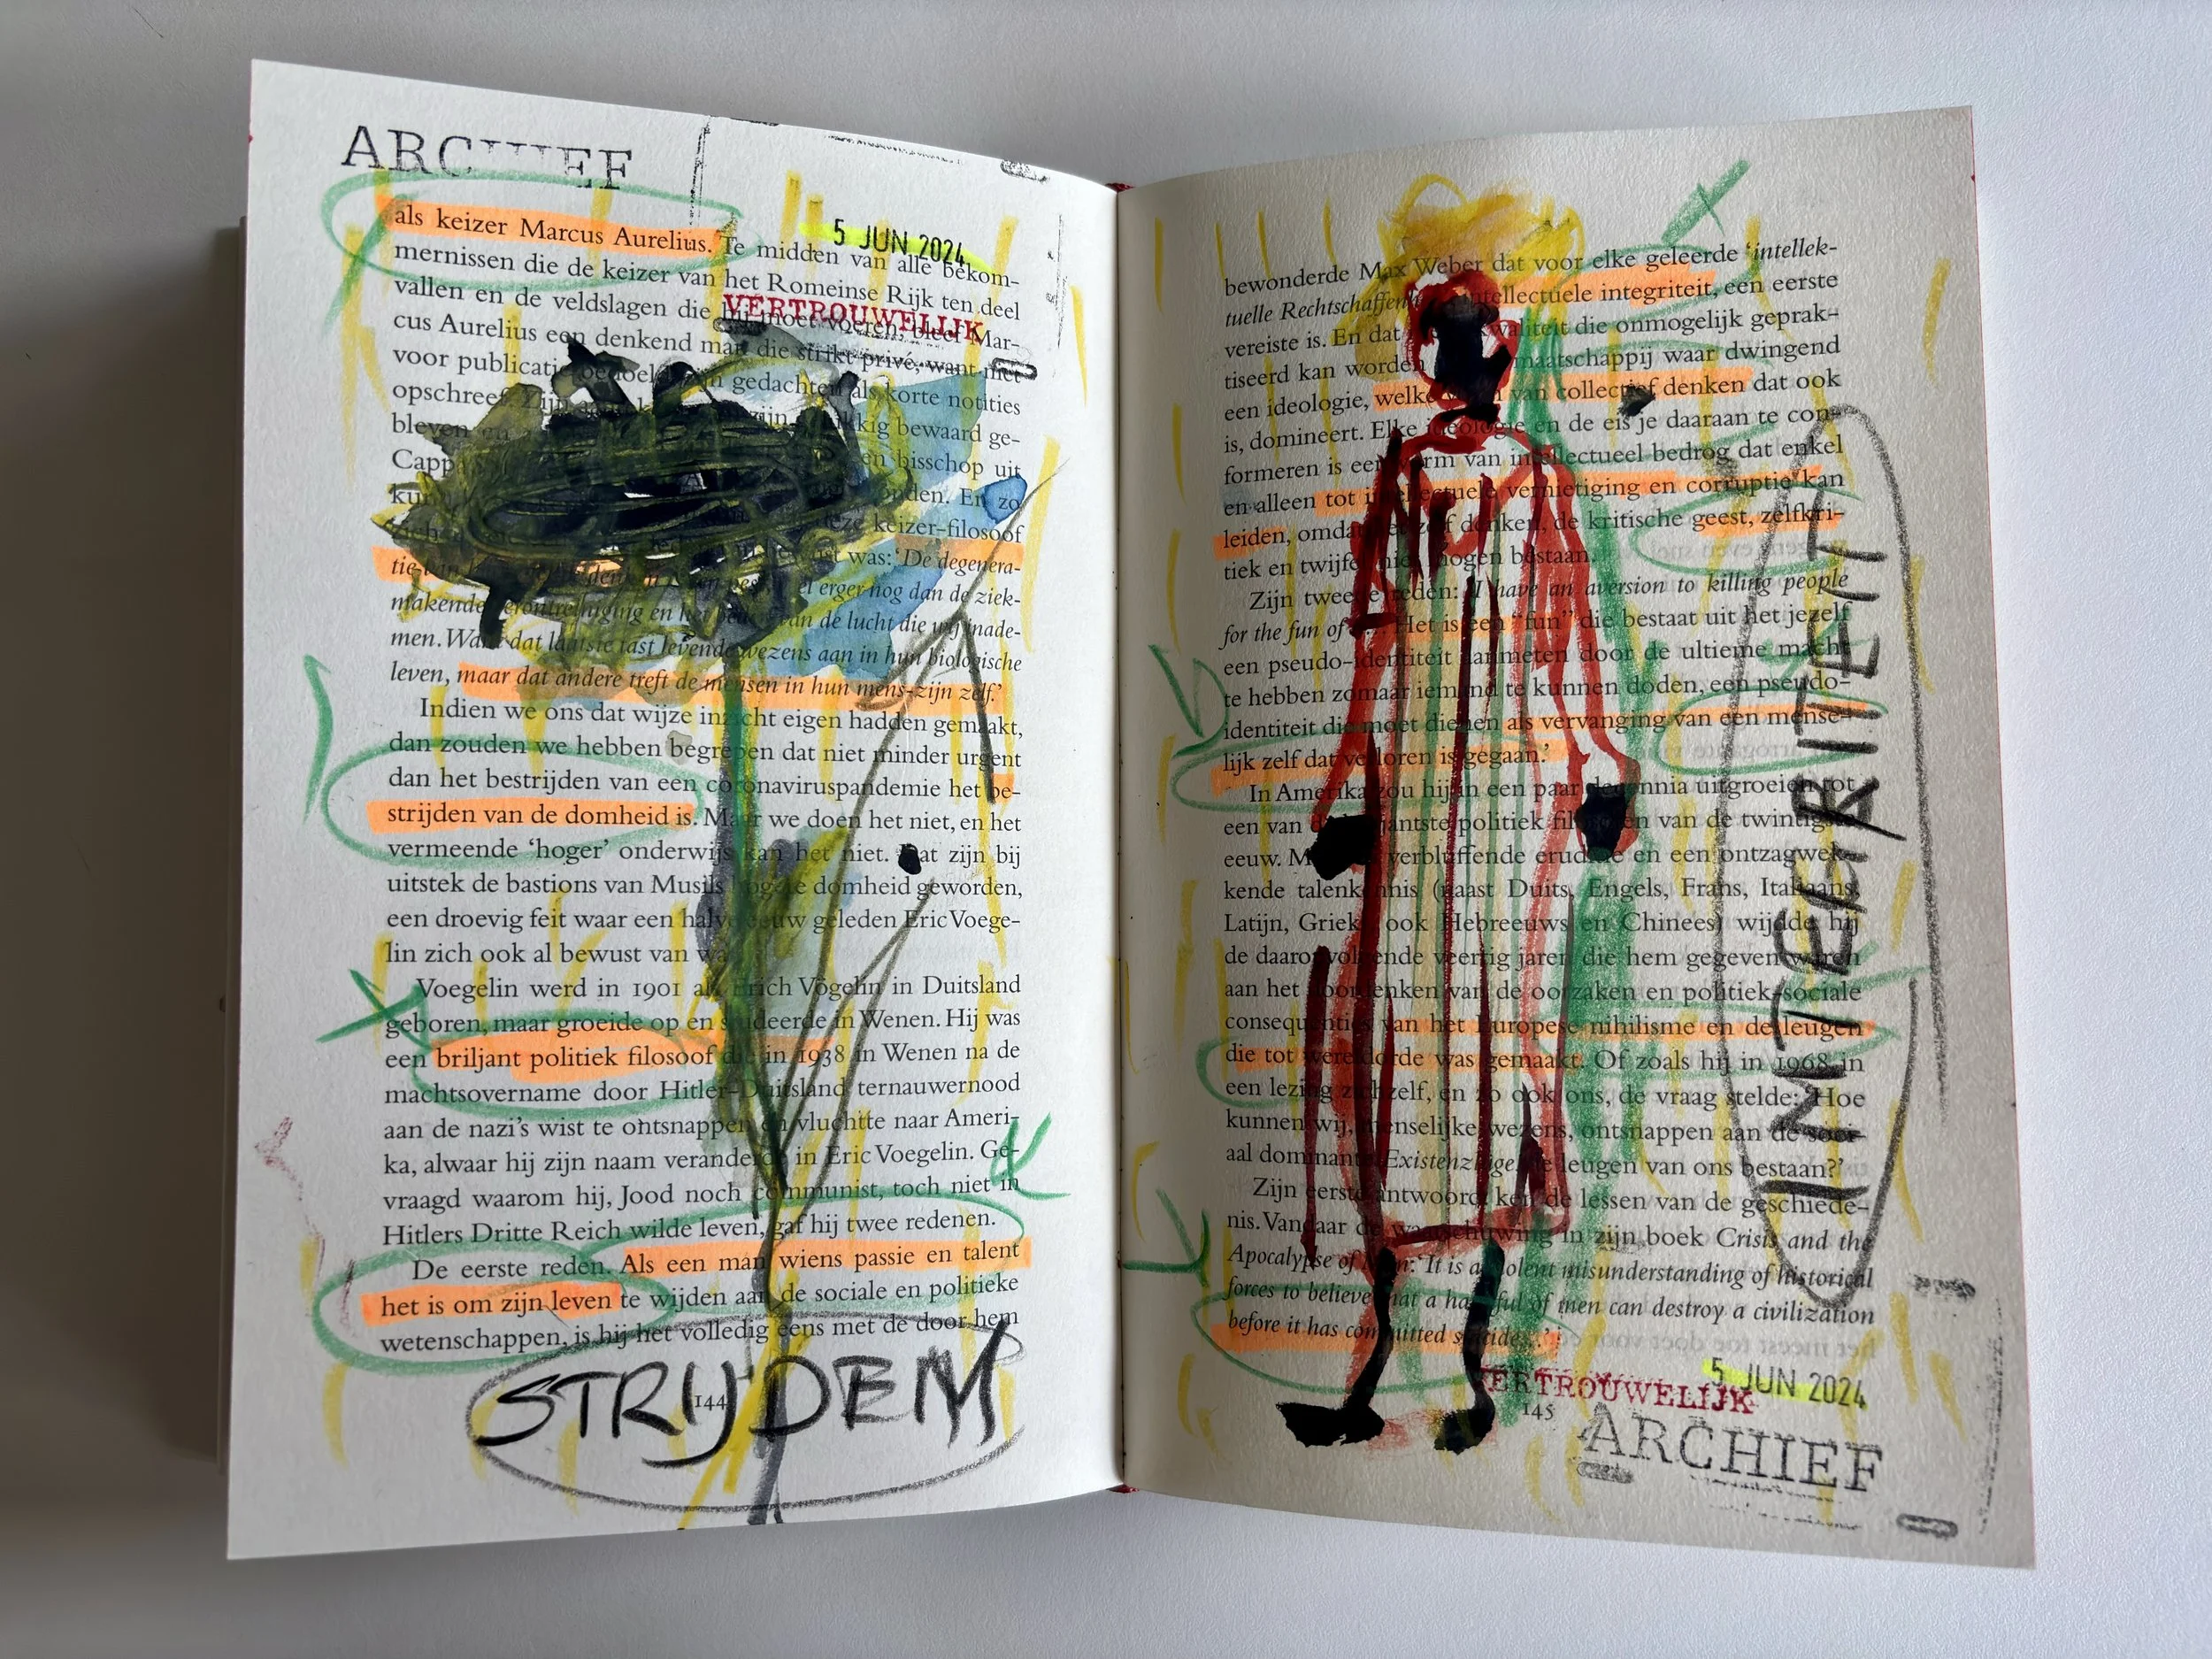 ARCHIEF
als keizer Marcus Aurelius. Te midden van alle bekom-
5 JUN 2024
mernissen die de keizer van het Romeinse Rijk ten deel
vallen en de veldslagen die hij moet voeren, bleef Mar-
VERTROUWELIJK
cus Aurelius een denkend man die strikt privé, want niet
voor publicatie bedoeld, zijn gedachten als korte notities
opschreef. Zijn
bleven en bewaard ge-
Capp en bisschop uit
En zo
zich deze keizer-filosoof
was: ‘De degenera-
tie van erger nog dan de ziek-
makende verontreiniging en het van de lucht die wij inade-
men. Want dat laatste tast levende wezens aan in hun biologische
leven, maar dat andere treft de mensen in hun mens-zijn zelf.’
Indien we ons dat wijze inzicht eigen hadden gemaakt,
dan zouden we hebben begrepen dat niet minder urgent
dan het bestrijden van een coronaviruspandemie het be-
strijden van de domheid is. Maar we doen het niet, en het
vermeende ‘hoger’ onderwijs kan het niet. Dat zijn bij
uitstek de bastions van Musils hogere domheid geworden,
een droevig feit waar een halve eeuw geleden Eric Voege-
lin zich ook al bewust van was.
Voegelin werd in 1901 als Erich Vögelin in Duitsland
geboren, maar groeide op en studeerde in Wenen. Hij was
een briljant politiek filosoof die in 1938 in Wenen na de
machtsovername door Hitler-Duitsland ternauwernood
aan de nazi’s wist te ontsnappen en vluchtte naar Ameri-
ka, alwaar hij zijn naam veranderde in Eric Voegelin. Ge-
vraagd waarom hij, Jood noch communist, toch niet in
Hitlers Dritte Reich wilde leven, gaf hij twee redenen.
De eerste reden. Als een man wiens passie en talent
het is om zijn leven te wijden aan de sociale en politieke
wetenschappen, is hij het volledig eens met de door hem
STRIJDEN
144
bewonderde Max Weber dat voor elke geleerde ‘intellek-
tuelle Rechtschaffenheit’, intellectuele integriteit, een eerste
vereiste is. En dat kwaliteit die onmogelijk geprak-
tiseerd kan worden maatschappij waar dwingend
een ideologie, welke van collectief denken dat ook
is, domineert. Elke ideologie en de eis je daaraan te con-
formeren is een vorm van intellectueel bedrog dat enkel
en alleen tot intellectuele vernietiging en corruptie kan
leiden, omdat het zelf denken, de kritische geest, zelfkri-
tiek en twijfel niet mogen bestaan.
Zijn tweede reden: ‘I have an aversion to killing people
for the fun of it. Het is een “fun” die bestaat uit het jezelf
een pseudo-identiteit aanmeten door de ultieme macht
te hebben zomaar iemand te kunnen doden, een pseudo-
identiteit die moet dienen als vervanging van een mense-
lijk zelf dat verloren is gegaan.’
In Amerika zou hij in een paar decennia uitgroeien tot
een van de briljantste politiek filosofen van de twintigste
eeuw. Met verbluffende eruditie en een ontzagwek-
kende talenkennis (naast Duits, Engels, Frans, Italiaans,
Latijn, Grieks, ook Hebreeuws en Chinees) wijdde hij
de daaropvolgende veertig jaren die hem gegeven waren
aan het doordenken van de oorzaken en politiek-sociale
consequenties van het Europese nihilisme en de leugen
die tot wereldorde was gemaakt. Of zoals hij in 1968 in
een lezing zichzelf, en zo ook ons, de vraag stelde: ‘Hoe
kunnen wij, menselijke wezens, ontsnappen aan de soci-
aal dominante Existenzlüge, de leugen van ons bestaan?’
Zijn eerste antwoord: ken de lessen van de geschiede-
nis. Vandaar de waarschuwing in zijn boek Crisis and the
Apocalypse of Man: ‘It is a violent misunderstanding of historical
forces to believe that a handful of men can destroy a civilization
before it has committed suicide...’
INTEGRITEIT
5 JUN 2024
VERTROUWELIJK
145
ARCHIEF